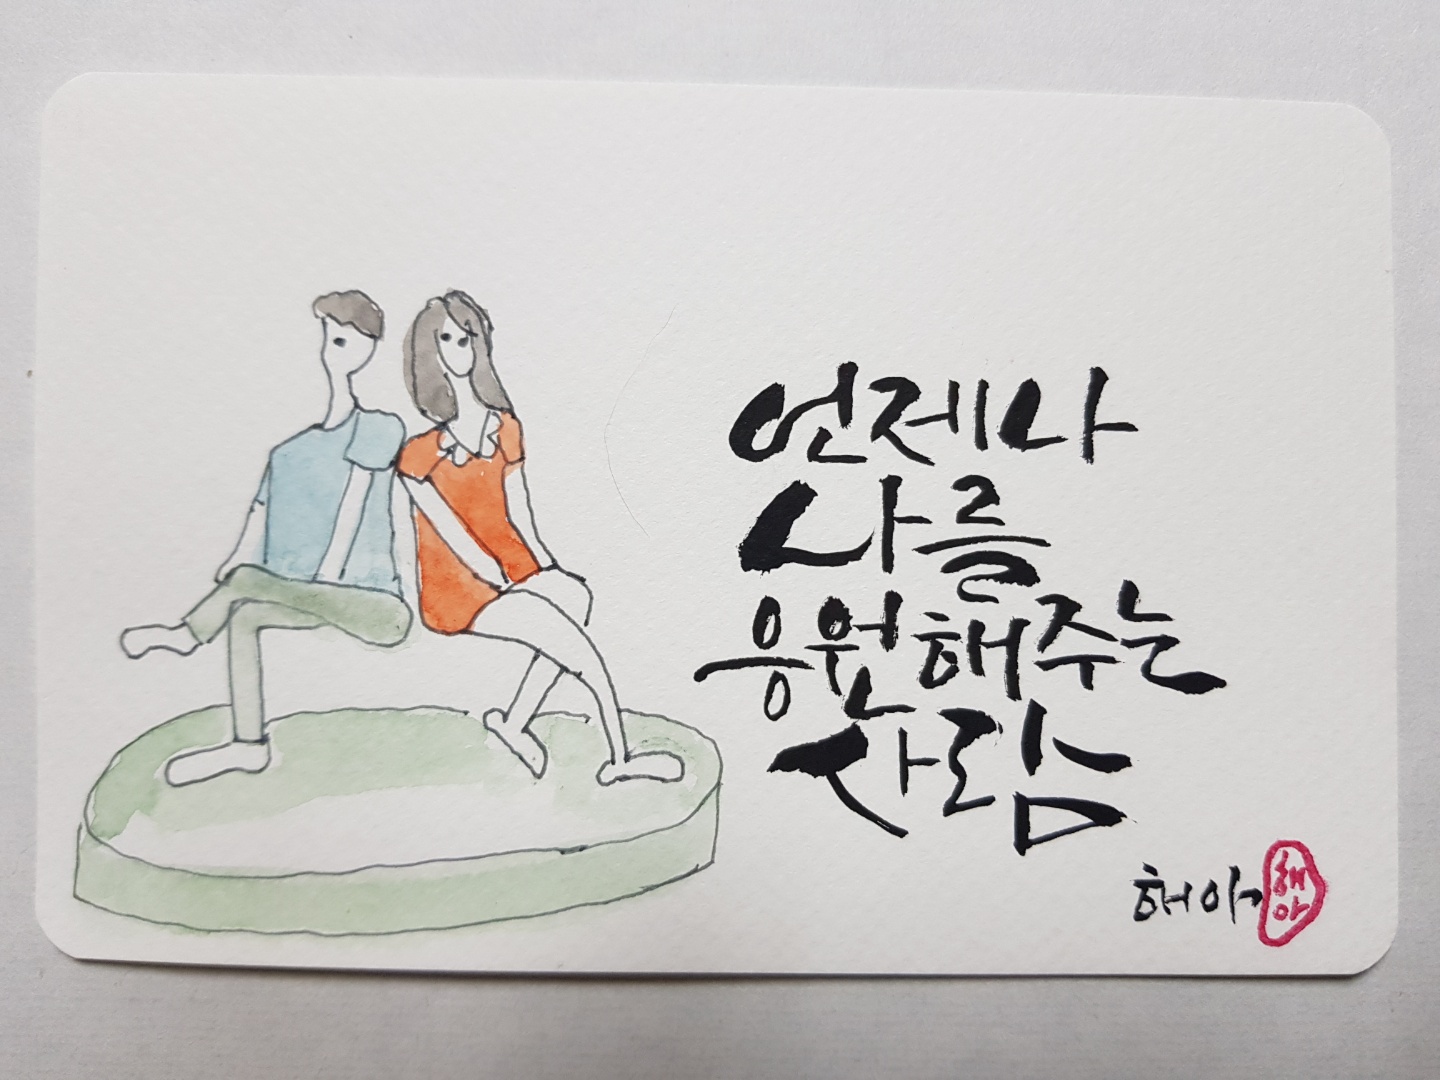 언제나
나를
응원해주는
사람
해아
해
아